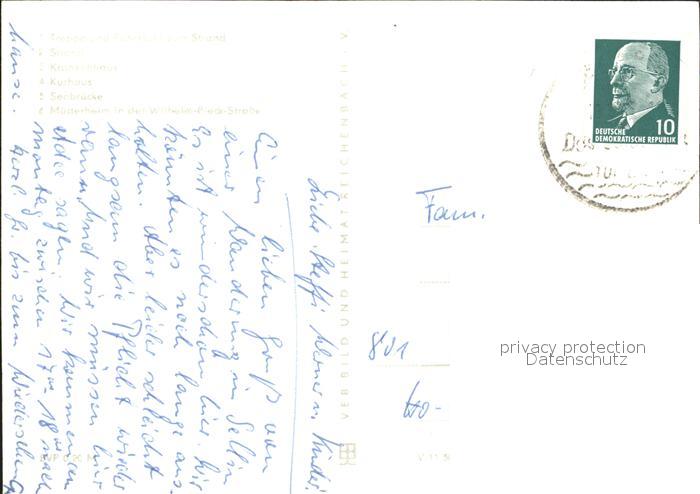 1 Treppe und Fahrstuhl zum Strand
2 Strand
3 Krankenhaus
4 Kurhaus
5 Seebrücke
6 Mütterheim in der Wilhelm-Pieck-Straße
Liebe Steffi, Werner u. Kinder!
Einen lieben Gruß von
einer Wanderung in Sellin
Es ist wunderschön hier. Wir
könnten es noch lange aus-
halten. Aber leider schleicht
langsam die Pflicht wieder
ran. Und wir müssen hier
Adee sagen. Wir kommen am
montag zwischen 17°° 18°° nach
hause. Herzl. Gr. bis zum Wiedersehen
VEB BILD UND HEIMAT REICHENBACH · V.
EVP 0,20 M
V 11 50
10
DEUTSCHE
DEMOKRATISCHE REPUBLIK
Fam.
801
privacy protection
Datenschutz